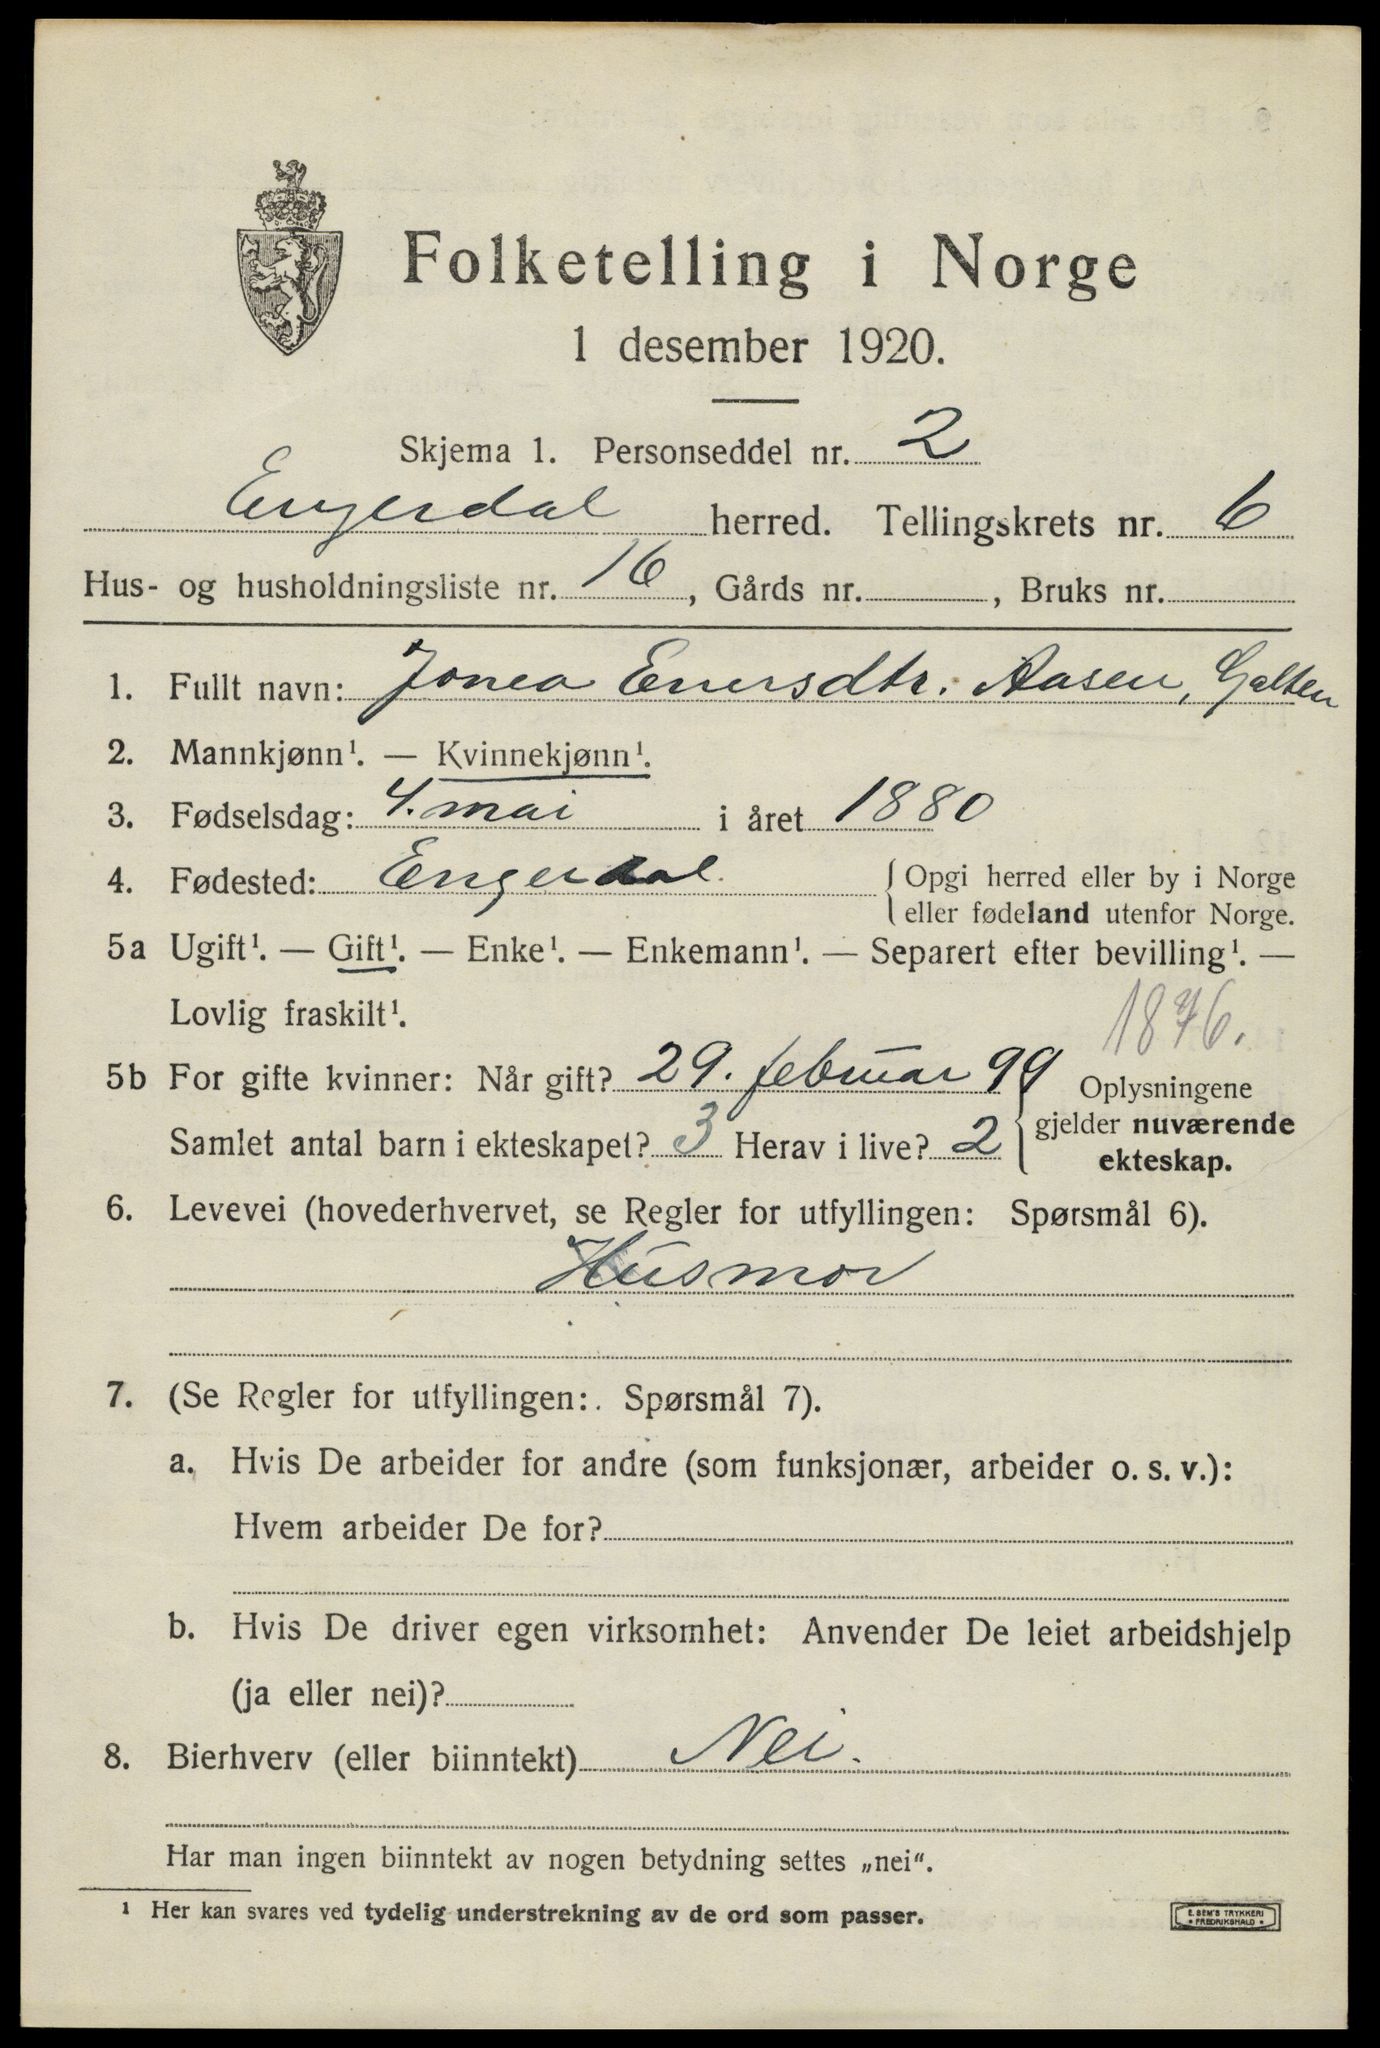 Folketelling i Norge
1 desember 1920.
Skjema 1. Personseddel nr. 2
Engerdal herred. Tellingskrets nr. 6
Hus- og husholdningsliste nr. 16, Gårds nr. , Bruks nr.
1. Fullt navn: Jonea Enersdtr. Aasen, Galten
2. Mannkjønn¹. — Kvinnekjønn¹.
3. Fødselsdag: 4. mai i året 1880
4. Fødested: Engerdal { Opgi herred eller by i Norge
eller fødeland utenfor Norge.
5a Ugift¹. — Gift¹. — Enke¹. — Enkemann¹. — Separert efter bevilling¹. —
Lovlig fraskilt¹.
1876.
5b For gifte kvinner: Når gift? 29. februar 99
Samlet antal barn i ekteskapet? 3 Herav i live? 2
Oplysningene
gjelder nuværende
ekteskap.
6. Levevei (hovederhvervet, se Regler for utfyllingen: Spørsmål 6).
Husmor
7. (Se Regler for utfyllingen: Spørsmål 7).
a. Hvis De arbeider for andre (som funksjonær, arbeider o. s. v.):
Hvem arbeider De for?
b. Hvis De driver egen virksomhet: Anvender De leiet arbeidshjelp
(ja eller nei)?
8. Bierhverv (eller biinntekt) Nei.
Har man ingen biinntekt av nogen betydning settes „nei“.
¹ Her kan svares ved tydelig understrekning av de ord som passer.
E. SEM'S TRYKKERI
• FREDRIKSHALD •